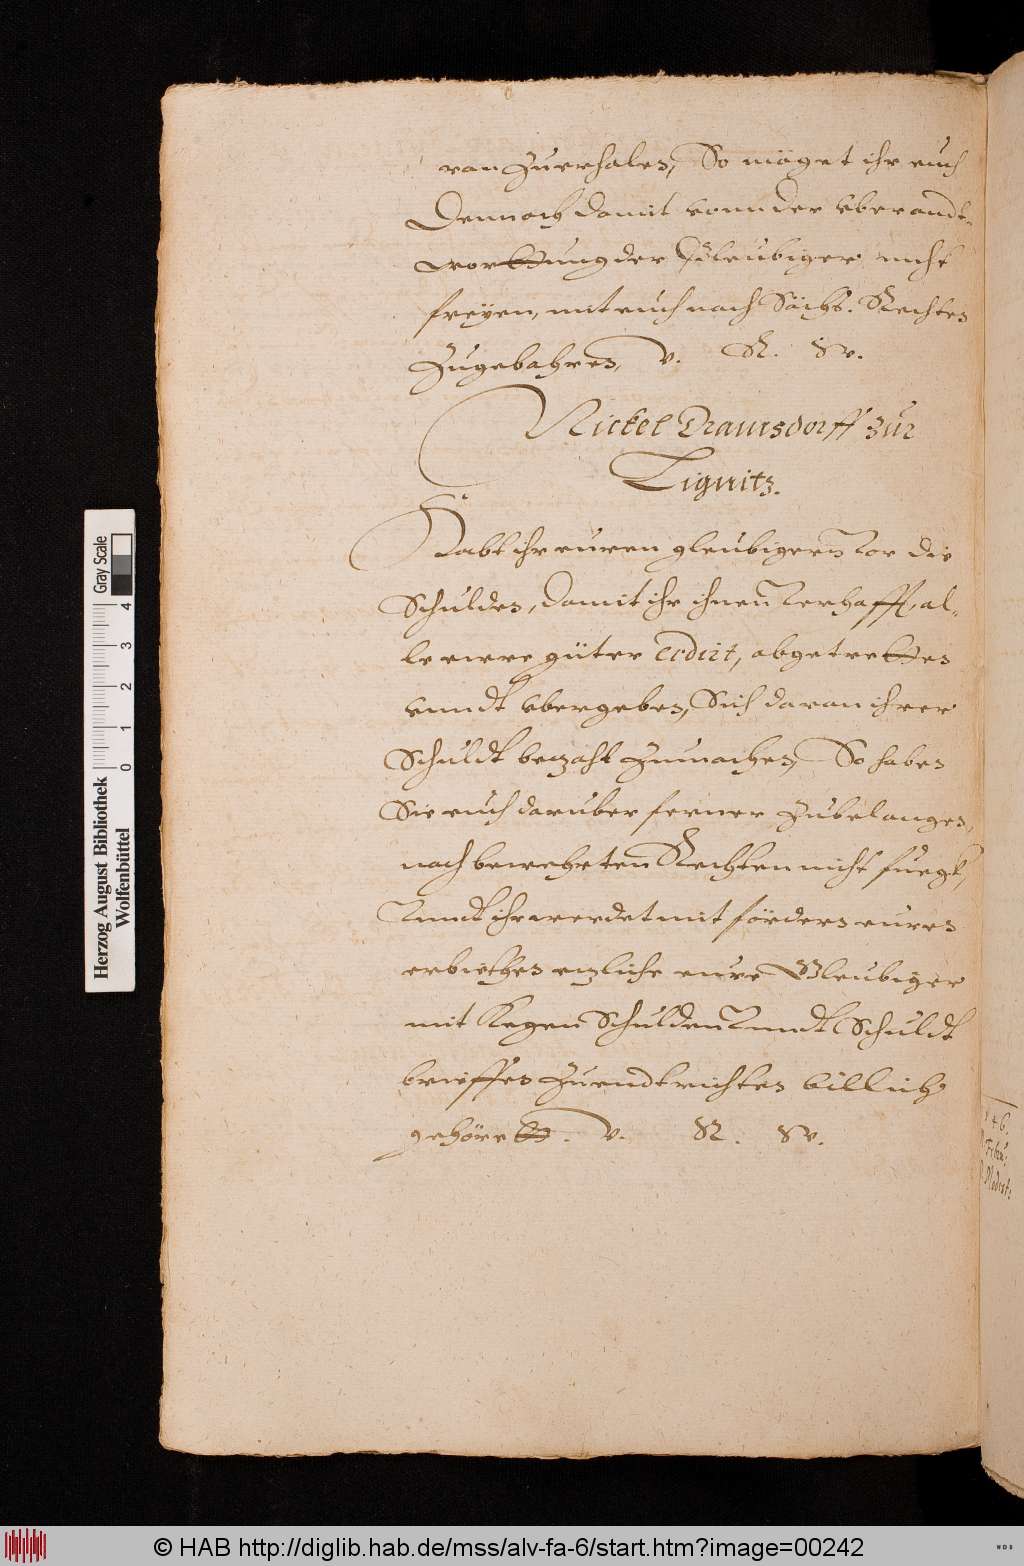 ran Zuerhalen, So möget ihr euch
Dennoch damit vonn der vberandt-
wortung der Gleubiger nicht
freyen, mit euch nach Sächs. Rechten
Zugebahren, v. R. w.
Nickel Dramsdorff zur
Lignitz.
Habt ihr euren gleubigern vor die
Schulden, damit ihr ihnen verhafft, al-
le ewre güter cedirt, abgetretten
vnndt vbergeben, Sich daran ihrer
Schuldt bezahlt Zumachen, So haben
Sie euch daruber ferner Zubelangen,
nach bewehrten Rechten nicht fueg,
Vnndt ihr werdet mit fördern eures
erbiethen eure Gleubiger
mit gegen Schulden Vnndt Schuldt
brieffen Zuendtrichten billich
gehörett. v. R. w.
146.
Herzog August Bibliothek
Wolfenbüttel
0 1 2 3 4
Gray Scale
© HAB http://diglib.hab.de/mss/alv-fa-6/start.htm?image=00242
WDB